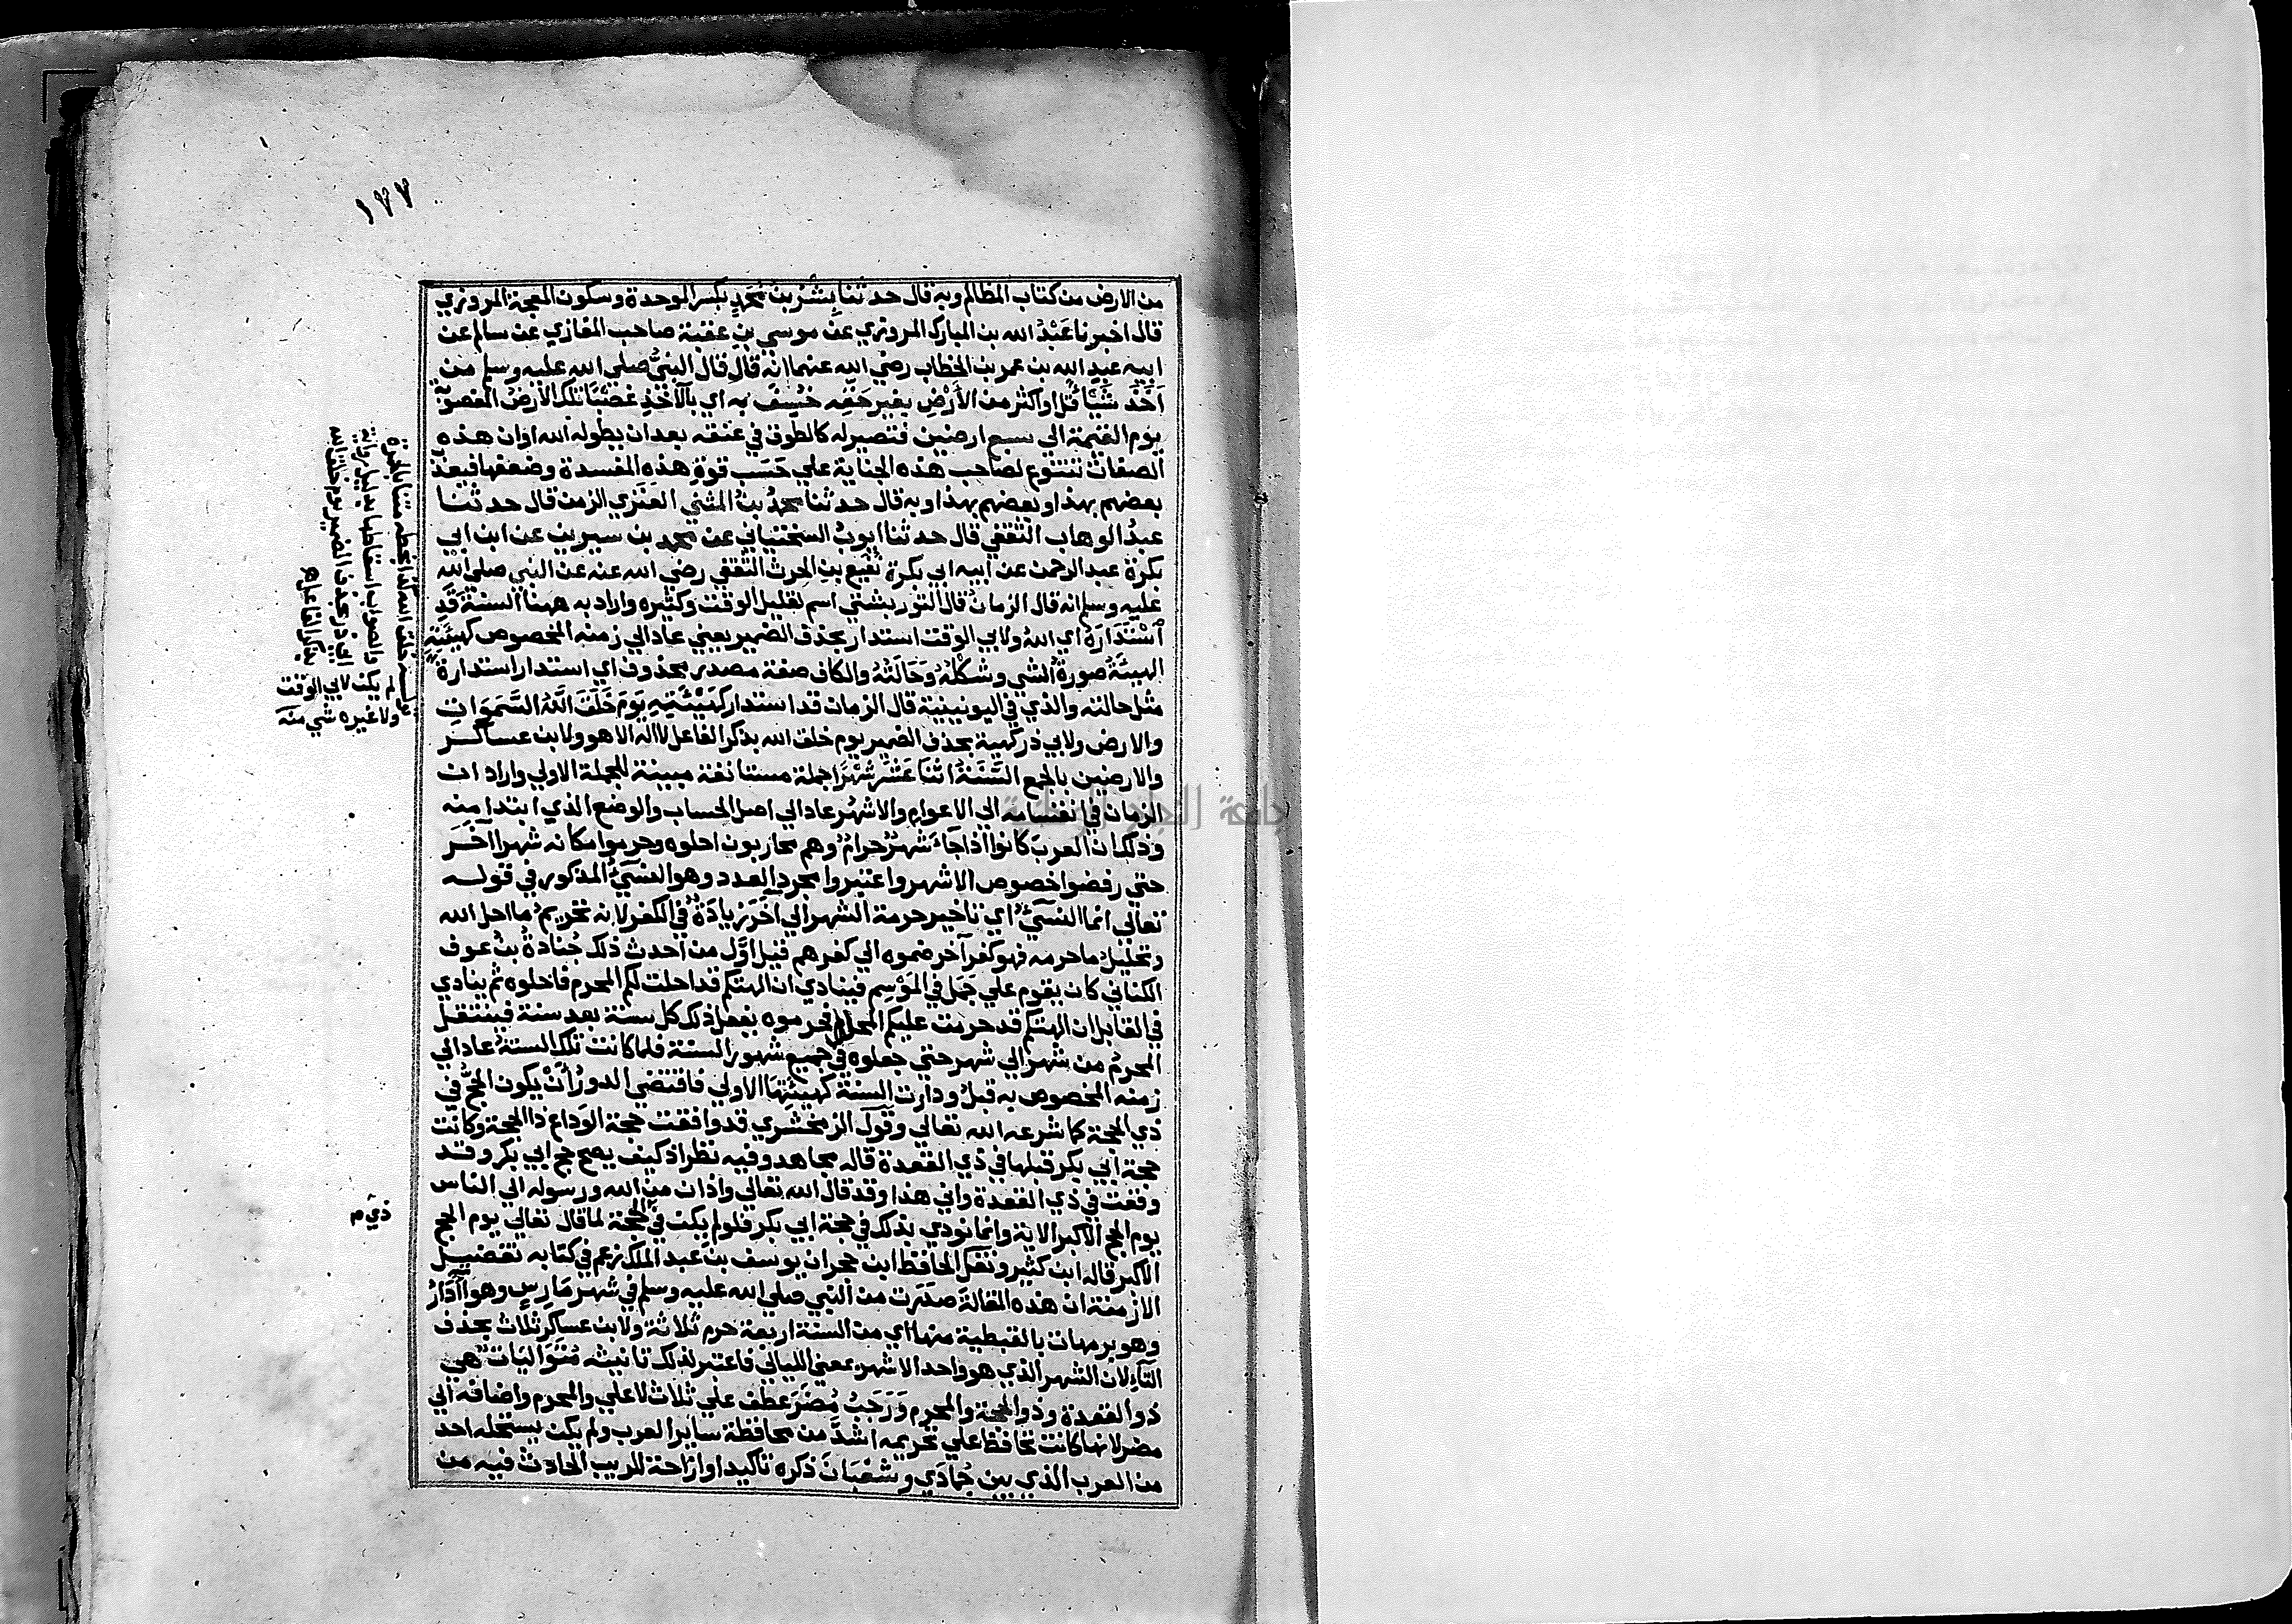 ١٧٧
من الارض من كتاب المظالم وبه قال حدثنا بِشْرُ بن مُحَمَّدٍ بكسر الموحدة وسكون المعجمة المروزي
قال اخبرنا عَبْدُ الله بن المبارك المروزي عن موسي بنِ عقبة صاحب المغازي عن سالم عن
ابيه عبد الله بن عمر بن الخطاب رضي الله عنهما انه قال قال النبيُّ صلي الله عليه وسلم من
اَخَذَ شَيْئًا قل او كثر من الأَرْضِ بغير حَقِّه خُسِفَ به اي بالآخذِ غصبًا تلك الارضُ المغصوبة
يوم القيمة الي سبع ارضين فتصير له كالطوق في عنقه بعد ان يطوله الله او ان هذه
الصفات تتنوع لصاحب هذه الجناية علي حَسَب قوةِ هذه المفسدة وضعفها فيعذب
بعضهم بهذا وبعضهم بهذا وبه قال حدثنا محمدُ بنُ المثني العَنَزي الزمن قال حدثنا
عبدُ الوهاب الثقفي قال حدثنا ايوبُ السختياني عن محمد بن سيرين عن ابن ابي
بكرة عبد الرحمن عن ابيه ابي بكرة نُفيع بنِ الحرث الثقفي رضي الله عنه عن النبي صلي الله
عليه وسلم انه قال الزمانُ قال التوربشتي اسم لقليل الوقت وكثيره واراد به ههنا السنة قَدِ
اسْتَدَارَهُ اي اللهُ ولابي الوقت استدار بحذف الضمير يعني عاد الي زمنه المخصوص كهيئَتِهِ
الهيئَةُ صورةُ الشي وشكلُهُ وَحَالَتُهُ والكاف صفة مصدر محذوف اي استدار استدارة
مثل حالته والذي في اليونينية قال الزمان قد استدار كَهَيْئَتِهِ يَوْمَ خَلَقَ اللَّهُ السَّمَوَاتِ
والارض ولابي ذر كهيئة بحذف الضمير يوم خلق الله بذكر الفاعل لا اله الا هو ولابن عساكر
والارضين بالجمع السَّنَةُ اثْنَا عَشَرَ شَهْرًا جملة مستانفة مبينة للجملة الاولي واراد ان
الزمان في انقسامه الي الاعوام والاشهُر عاد الي اصل الحساب والوضع الذي ابتدا منه
وذلك ان العربَ كانوا اذا جآءَ شهرٌ حرامٌ وهم محاربون احلوه وحرموا مكانه شهرا اخَر
حتي رفضوا خصوص الاشهر واعتبروا مجرد العدد وهو النسيءُ المذكور في قوله
تعالي انما النسيءُ اي تاخير حرمة الشهر الي اخَرَ زِيادَةٌ في الكفر لانه تحريمُ ما احل الله
وتحليلُ ما حرمه فهو كفرآخر ضموه الي كفرهم قيل اوَّل من احدث ذلك جُنَادةُ بنُ عوف
الكناني كان يقوم علي جَمَل في المَوْسِم فينادي ان الهتكم قد احلت لكم المحرم فاحلوه ثم ينادي
في القابل ان الهتكم قد حرمت عليكم المحرم فحرموه يفعل ذلك كل سنة بعد سنة فينتقل
المحرمُ من شهر الي شهر حتي جعلوه في جميع شهور السنة فلما كانت تلك السنةُ عاد الي
زمنه المخصوص به قبلُ ودارت السنة كهيئَتِهَا الاولي فاقتضي الدورُ أنْ يكون الحجُّ في
ذي الحجة كما شرعه الله تعالي وقول الزمخشري قد وافقت حجة الوداع ذا الحجة وكانت
حجة ابي بكر قبلها في ذي القعدة قاله مجاهد وفيه نظر اذ كيف يصح حج ابي بكر وقد
وقعت في ذي القعدة واني هذا وقد قال الله تعالي واذان من الله ورسوله الي الناس
يوم الحج الاكبر الاية وانما نودي بذلك في حجة ابي بكر فلو لم يكن في الحجة لما قال تعالي يوم الحج
الاكبر قاله ابن كثير ونقل الحافظ ابن حجر ان يوسف بن عبد الملك زعم في كتابه تفضيل
الازمنة ان هذه المقالة صَدَرت من النبي صلي الله عليه وسلم في شهر مَارس وهو آذَارُ
وهو برمهات بالقبطية منها اي من السنة اربعة حرم ثلاثة ولابن عساكر ثلاث بحذف
التآءِ لان الشهر الذي هو واحد الاشهر بمعني الليالي فاعتبر لذلك تانيثه مُتَوَالِيَات هي
ذو القعدة وذو الحجة والمحرم وَرَجَبُ مُضَرَ عطف علي ثلاث لا علي والمحرم واضافه الي
مضر لانها كانت تحافظ علي تحريمه اشدَّ من محافظة ساير العرب ولم يكن يستحله احد
من العرب الذي بين جُمادَي وشَعْبَانَ ذكره تاكيدا وازاحة للريب الحادث فيه من
بدليل
والصواب اسقاطها
بحذف الضمير يوم خلق الله
بذكر الفاعل اهـ
يكن لابي الوقت
ولا غيره شي منه
ذي م
جامعة النجاح الوطنية